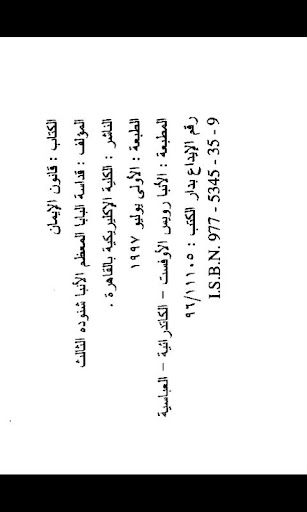 الكتاب : قانون الإيمان
المؤلف : قداسة البابا المعظم الأنبا شنوده الثالث
الناشر : الكلية الإكليريكية بالقاهرة .
الطبعة : الأولى يوليو ١٩٩٧
المطبعة : الأنبا رويس الأوفست - الكاتدرائية - العباسية
رقم الإيداع بدار الكتب : ٩٦/١١١٠٥
I.S.B.N. 977 - 5345 - 35 - 9